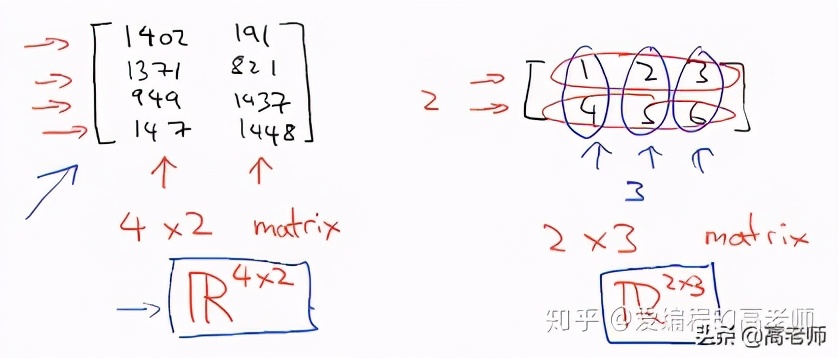 1402 191
1371 821
949 1437
147 1448
4 x 2 matrix
ℝ^{4x2}
2
1 2 3
4 5 6
3
2 x 3 matrix
ℝ^{2x3}
知乎 @爱编程的高老师
头条 @高老师